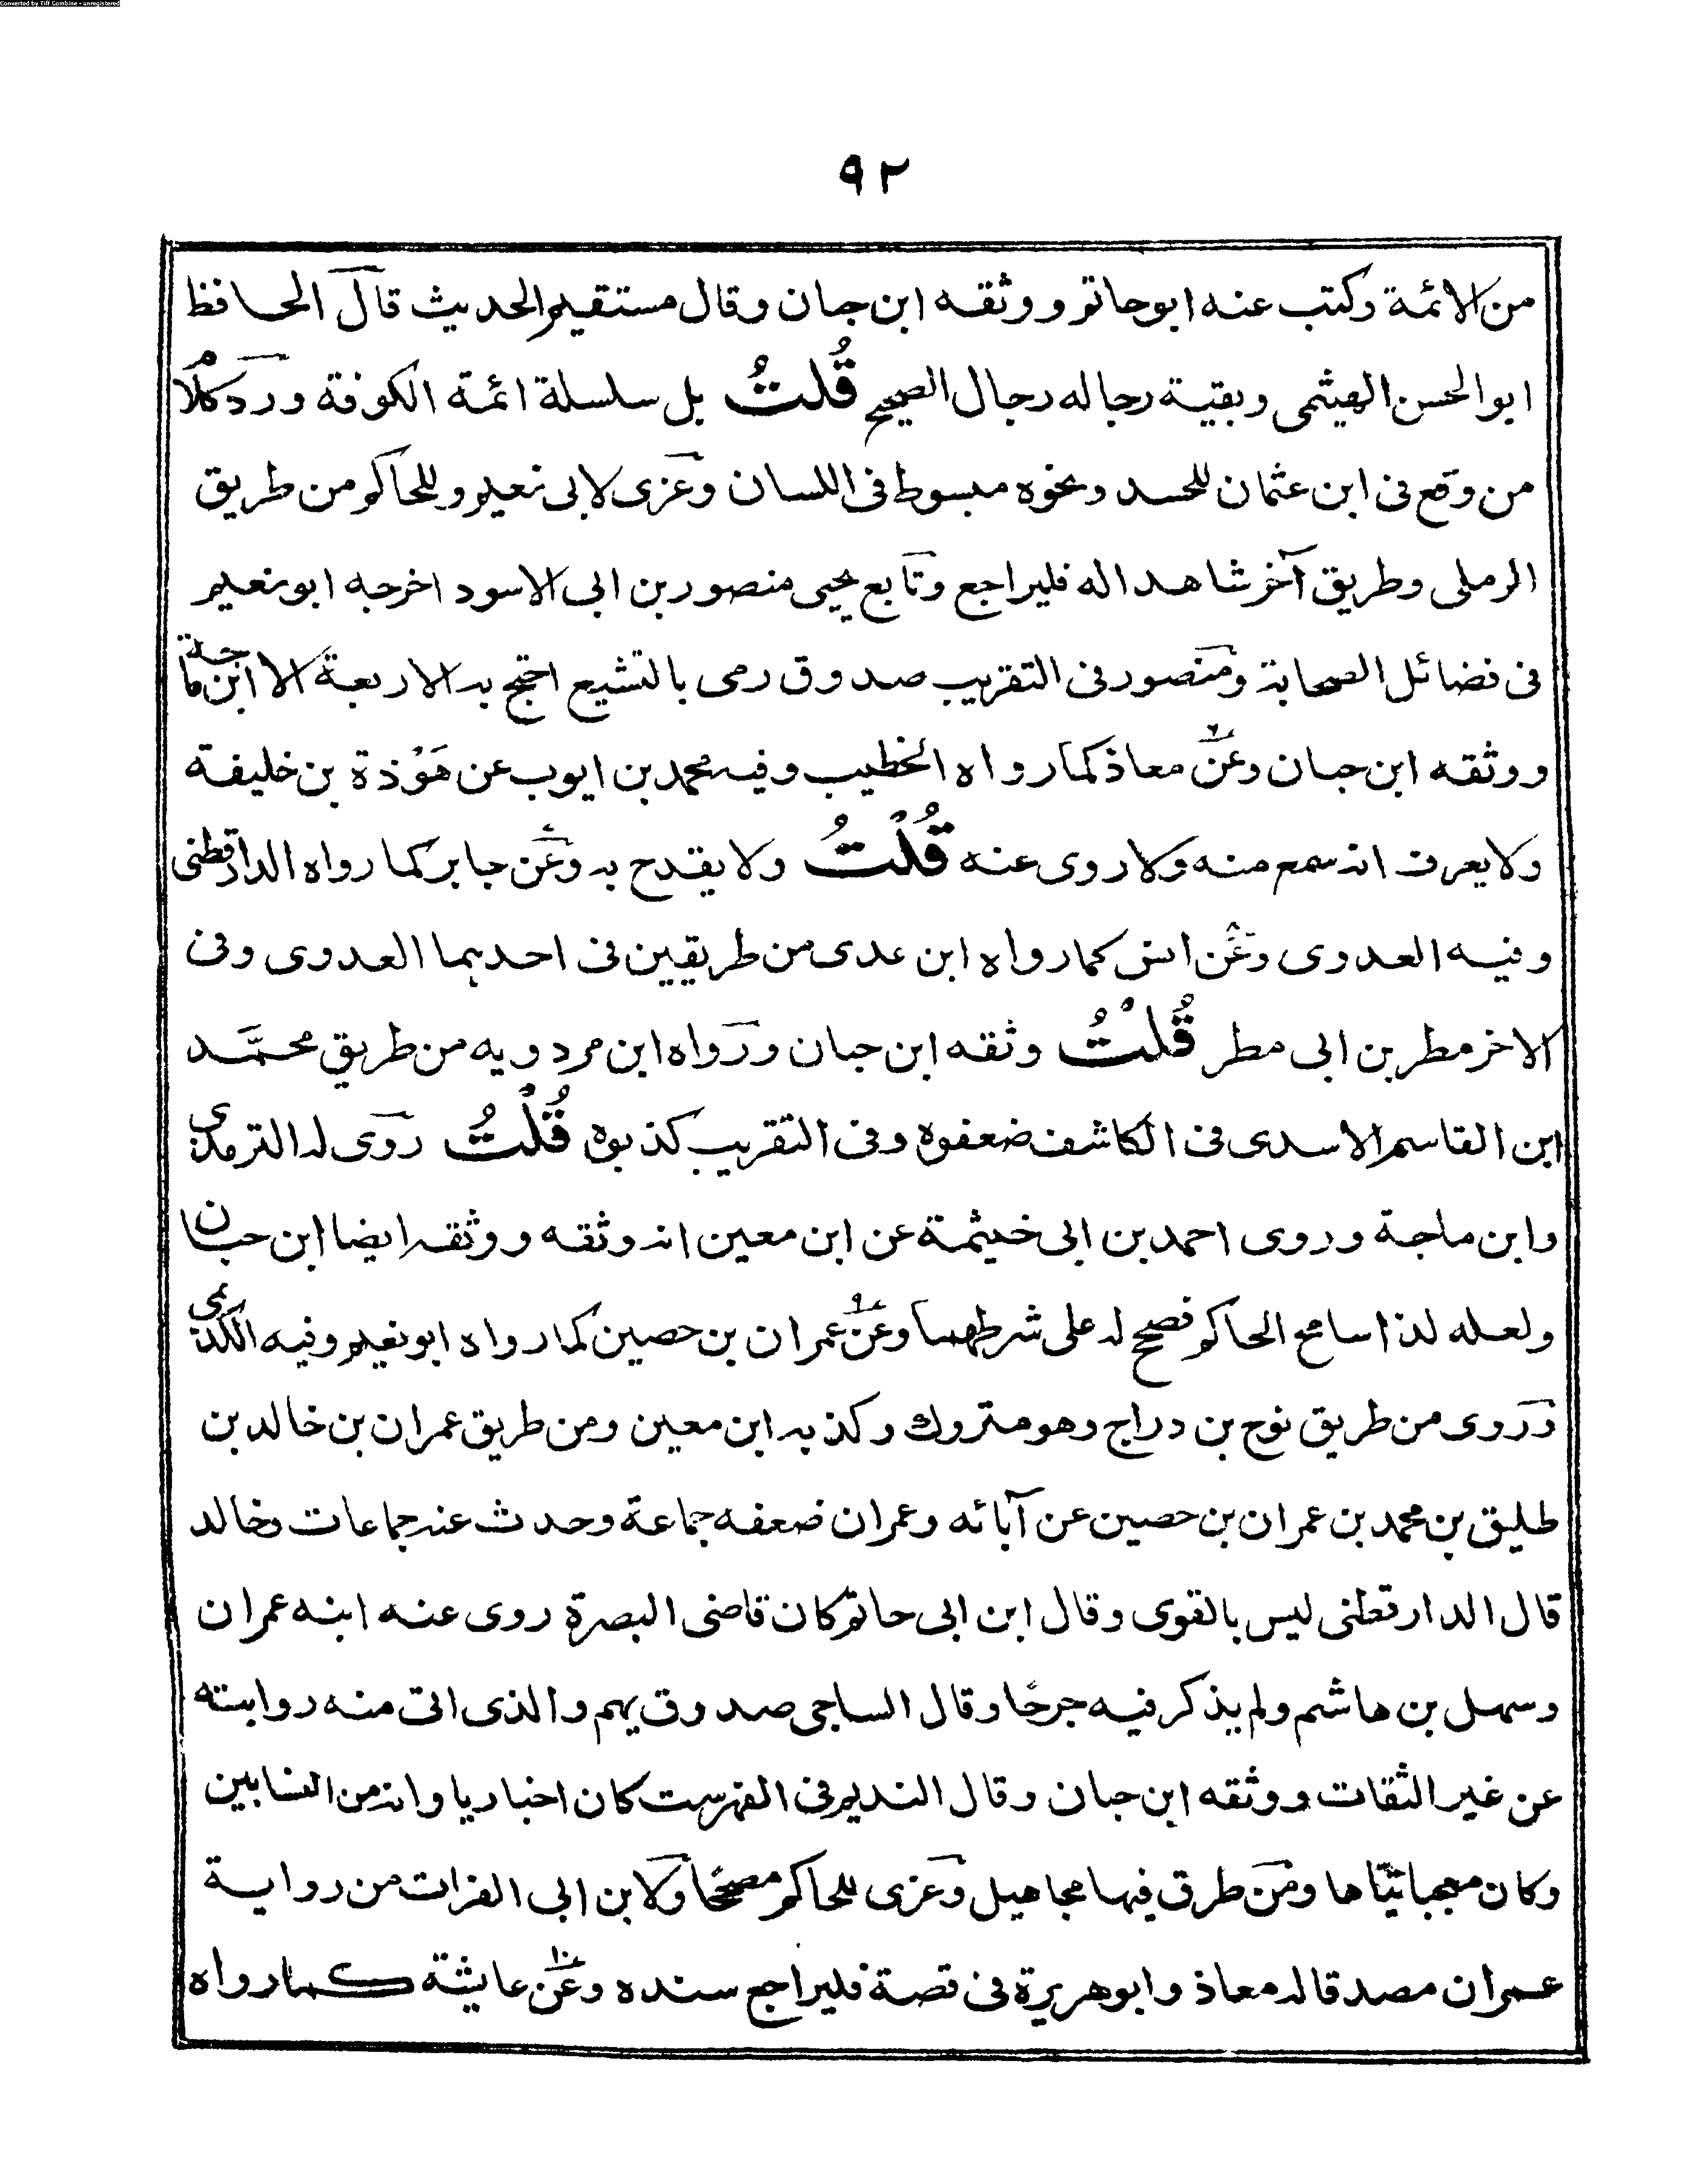 Converted by Tiff Combine - unregistered
٩٢
من الائمة وكتب عنه ابو حاتم ووثقه ابن حبان وقال مستقيم الحديث قال الحافظ
ابو الحسن الهيثمى وبقية رجاله رجال الصحيح قُلتُ بل سلسلة ائمة الكوفة ورد كلام
من وقع فى ابن عثمان للحسد ونحوه مبسوط فى اللسان وعزى لابى نعيم وللحاكم من طريق
الرملى وطريق آخر شاهدا له فليراجع وتابع يحيى منصور بن ابى الاسود اخرجه ابو نعيم
فى فضائل الصحابة ومنصور فى التقريب صدوق رمى بالتشيع احتج به الاربعة الا ابن ماجة
ووثقه ابن حبان وعن معاذ كما رواه الخطيب وفيه محمد بن ايوب عن هَوْذة بن خليفة
ولا يعرف انه سمع منه ولا روى عنه قُلْتُ ولا يقدح به وعن جابر كما رواه الدارقطنى
وفيه العدوى وعن انس كما رواه ابن عدى من طريقين فى احدهما العدوى وفى
الاخر مطر بن ابى مطر قُلْتُ وثقه ابن حبان ورواه ابن مردويه من طريق محمَّد
ابن القاسم الاسدى فى الكاشف ضعفوه وفى التقريب كذبوه قُلْتُ روى له الترمذى
وابن ماجة وروى احمد بن ابى خيثمة عن ابن معين انه وثقه ووثقه ايضا ابن حبان
ولعله لذا سامح الحاكم فصحح له على شرطهما وعن عمران بن حصين كما رواه ابو نعيم وفيه الكديمى
وروى من طريق نوح بن دراج وهو متروك وكذبه ابن معين ومن طريق عمران بن خالد بن
طليق بن محمد بن عمران بن حصين عن آبائه وعمران ضعفه جماعة وحدث عنه جماعات وخالد
قال الدارقطنى ليس بالقوى وقال ابن ابى حاتم كان قاضى البصرة روى عنه ابنه عمران
وسهل بن هاشم ولم يذكر فيه جرحًا وقال الساجى صدوق يهم والذى اتى منه روايته
عن غير الثقات ووثقه ابن حبان وقال النديم فى الفهرست كان اخباريا وانه من النسابين
وكان معجبا تيّاها ومن طرق فيها مجاهيل وعزى للحاكم مصححًا ولابن ابى الفرات من رواية
عمران مصدقا له معاذ وابو هريرة فى قصة فليراجع سنده وعن عايشة كما رواه